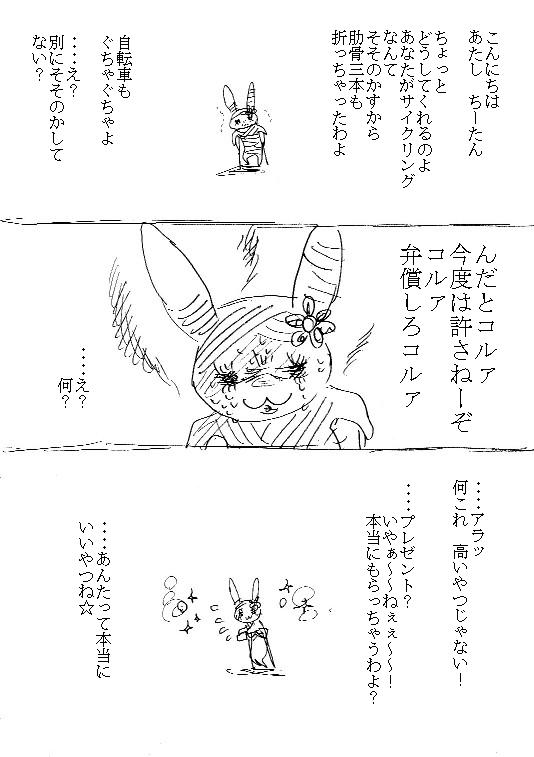 こんにちは
あたし　ちーたん
ちょっと
どうしてくれるのよ
あなたがサイクリング
なんて
そそのかすから
肋骨三本も
折っちゃったわよ
自転車も
ぐちゃぐちゃよ
・・・・え？
別にそそのかして
ない？
んだとコルァ
今度は許さねーぞ
コルァ
弁償しろコルァ
・・・・え？
何？
・・・・アラッ
何これ　高いやつじゃない！
・・・・プレゼント？
いやぁ～～ねぇぇ～～！
本当にもらっちゃうわよ？
・・・・あんたって本当に
いいやつね☆